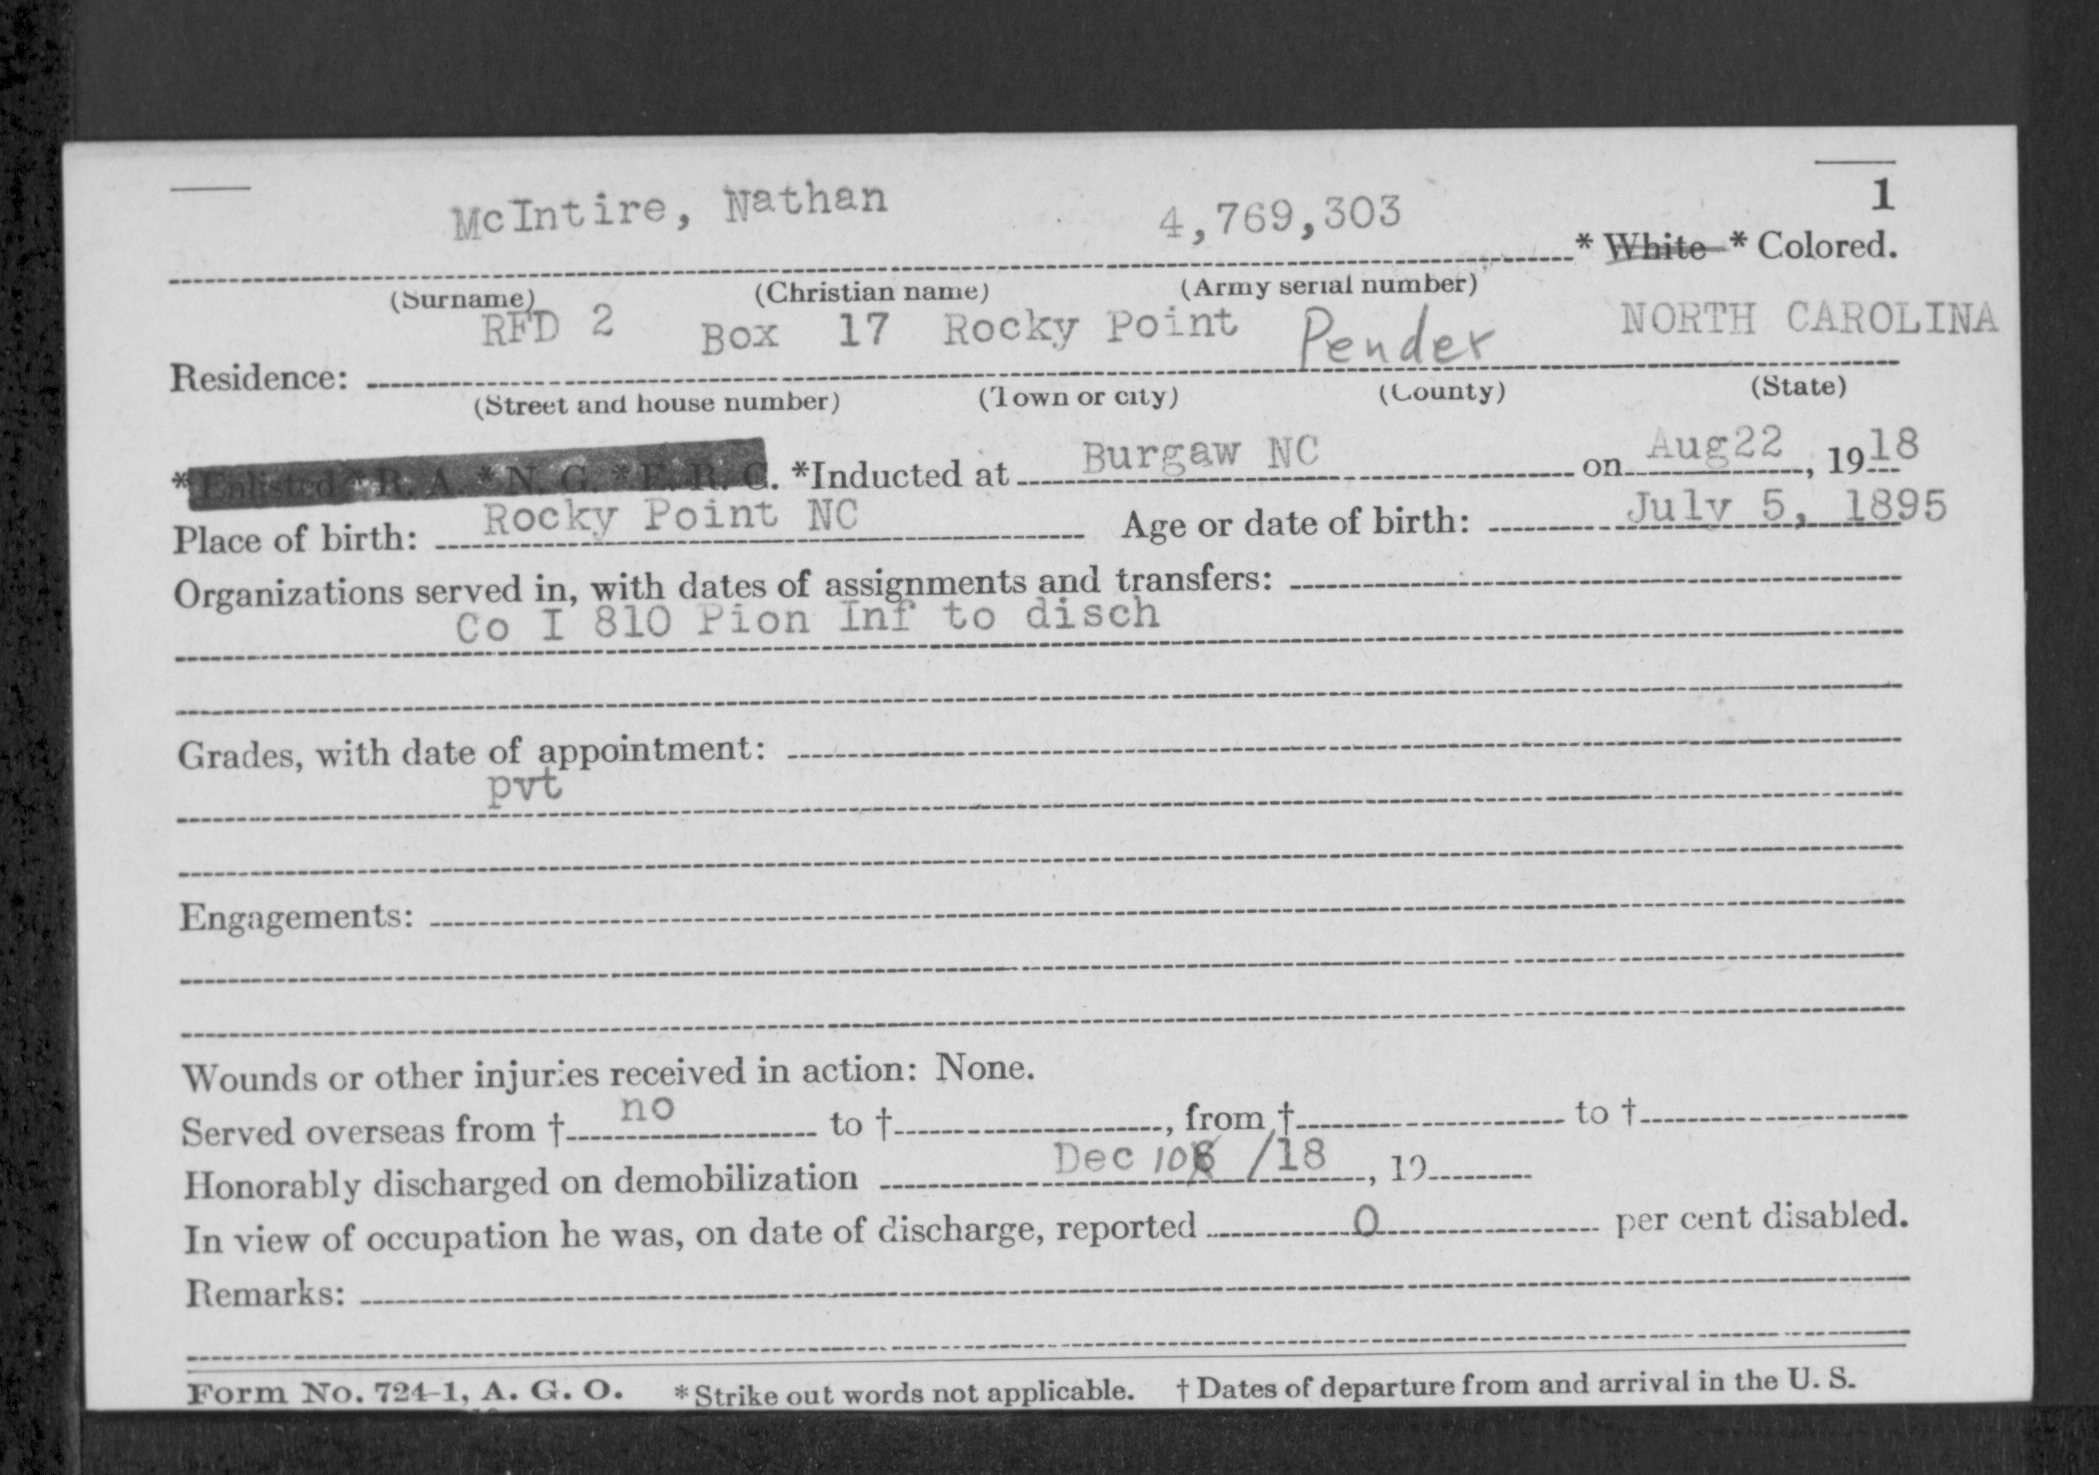 1
McIntire, Nathan 4,769,303 * White * Colored.
(Surname) (Christian name) (Army serial number)
RFD 2 Box 17 Rocky Point Pender NORTH CAROLINA
Residence:
(Street and house number) (Town or city) (County) (State)
* Enlisted * R. A. * N. G. * E. R. C. *Inducted at Burgaw NC on Aug22, 1918
Place of birth: Rocky Point NC Age or date of birth: July 5, 1895
Organizations served in, with dates of assignments and transfers:
Co I 810 Pion Inf to disch
Grades, with date of appointment:
pvt
Engagements:
Wounds or other injuries received in action: None.
Served overseas from † no to †, from † to †
Honorably discharged on demobilization Dec 10 /18, 19
In view of occupation he was, on date of discharge, reported 0 per cent disabled.
Remarks:
Form No. 724-1, A. G. O. * Strike out words not applicable. † Dates of departure from and arrival in the U. S.